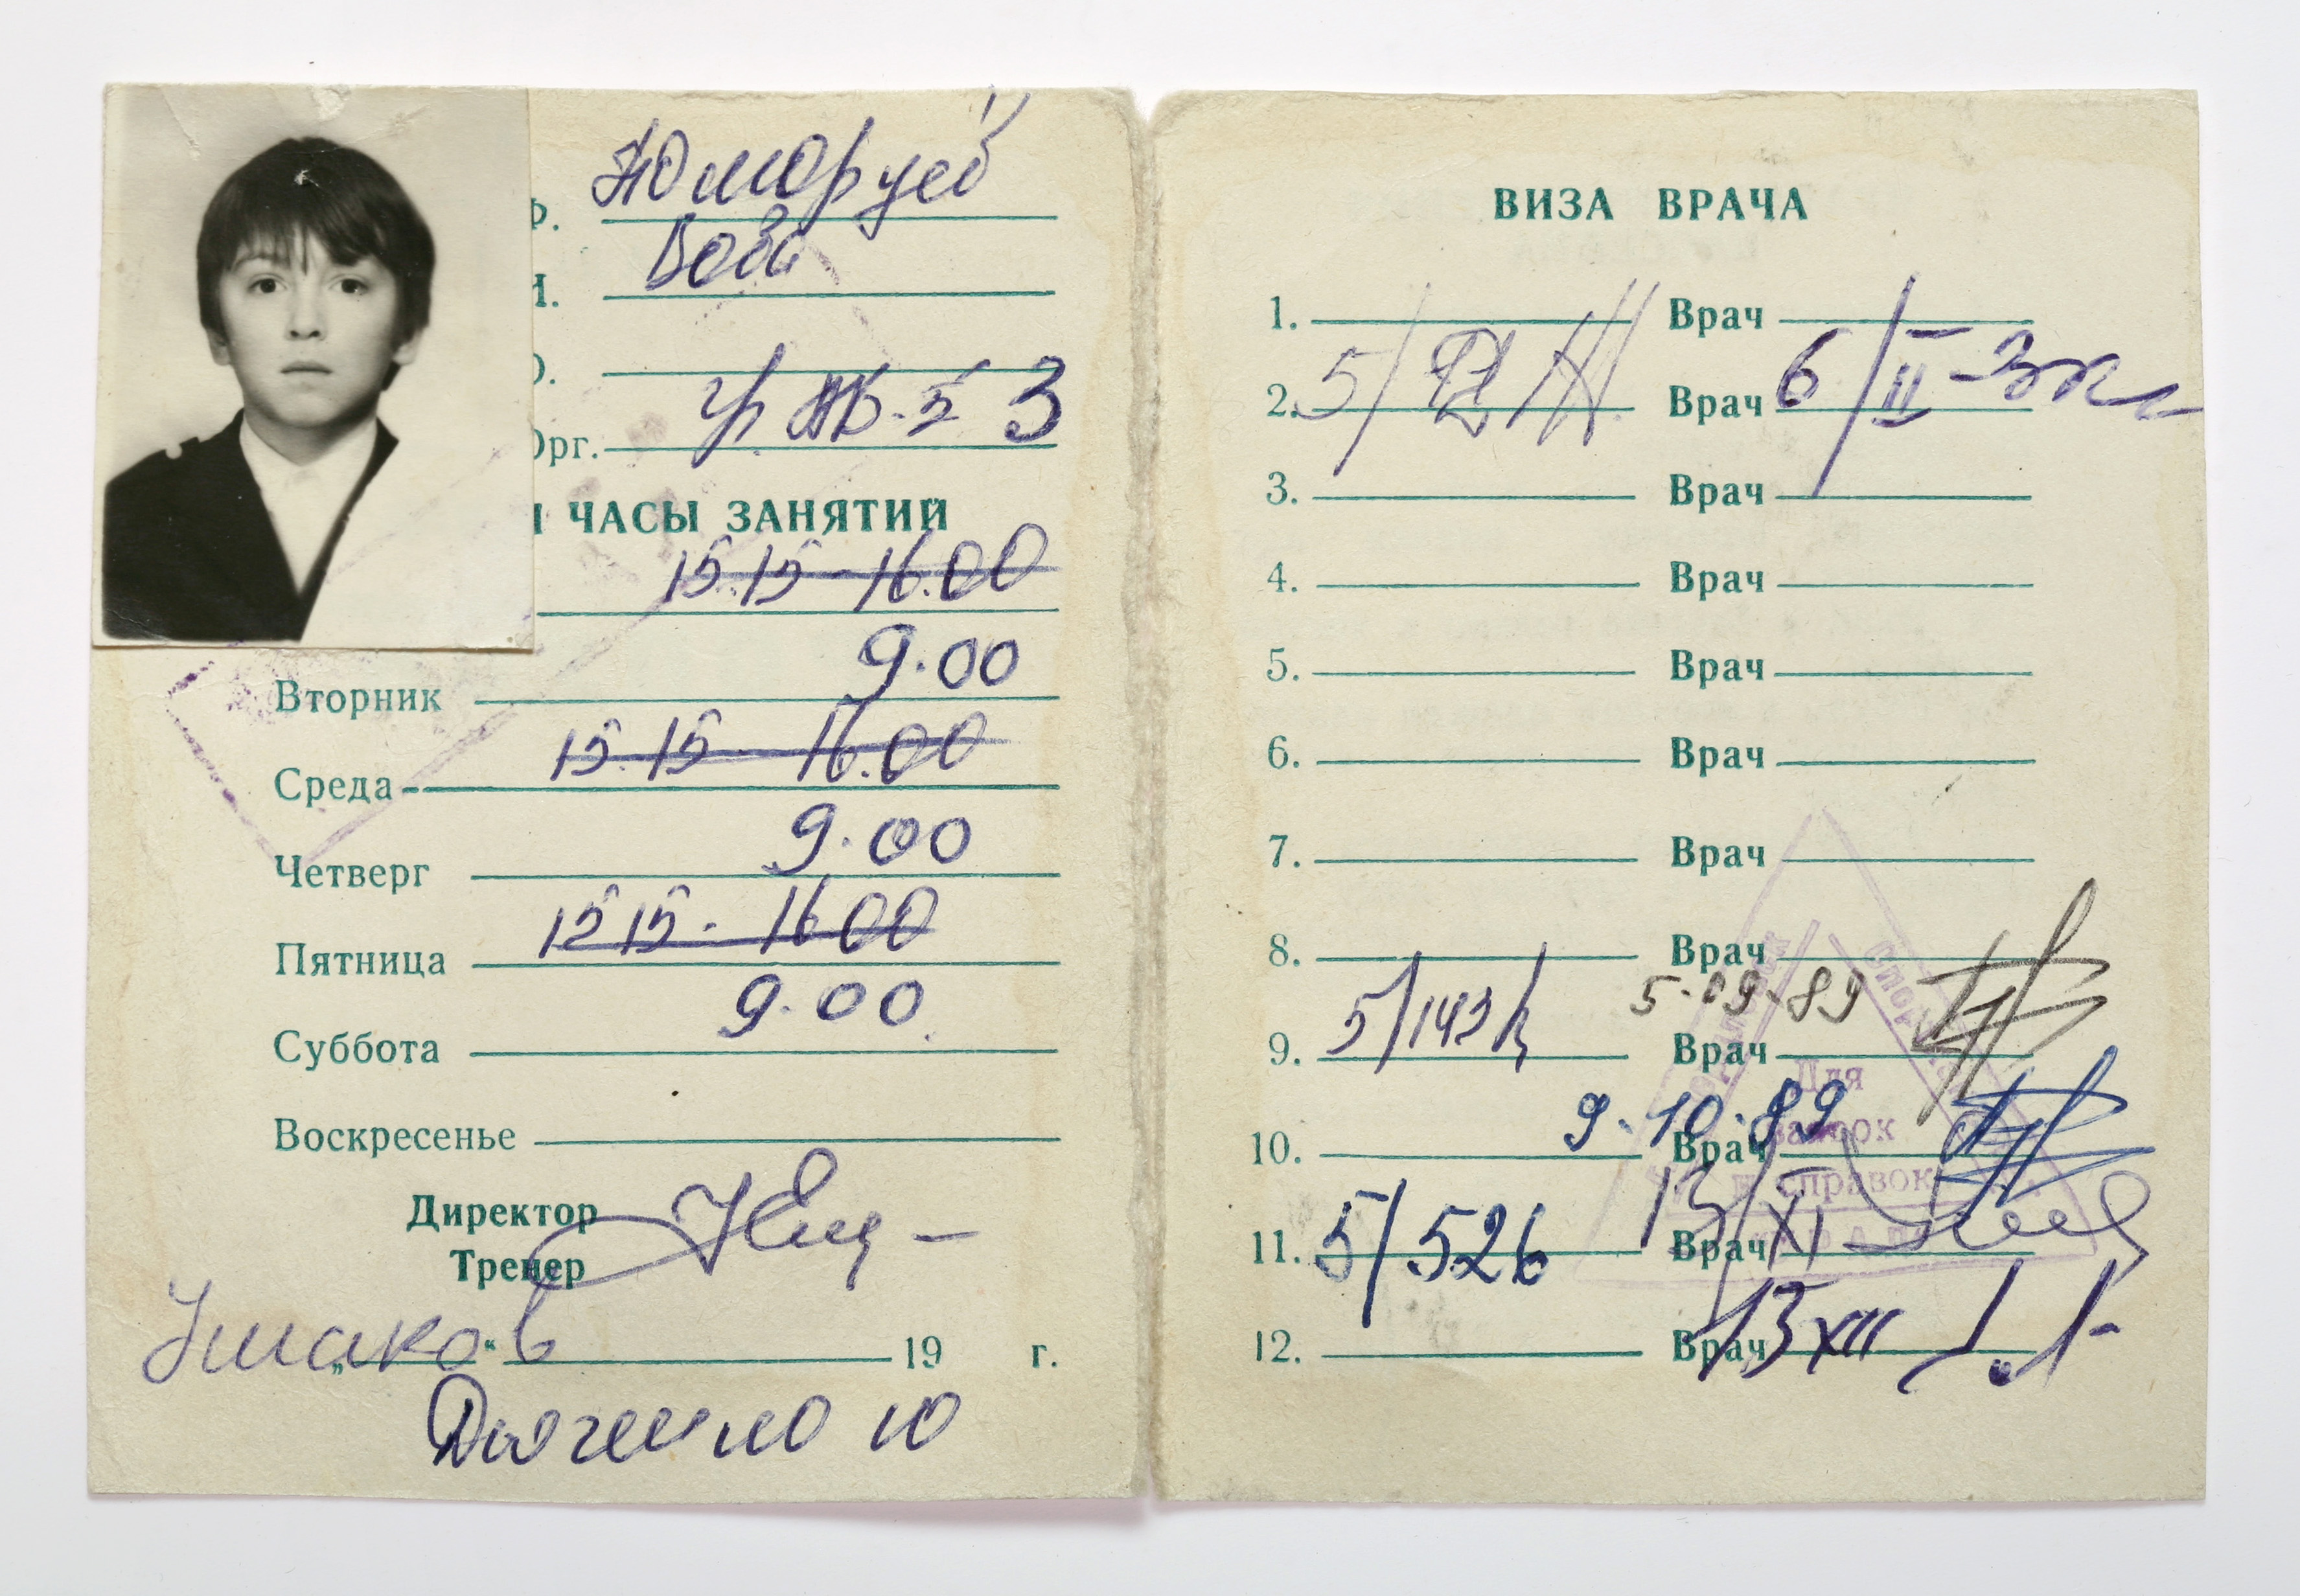 Ф.
И. Вова
О.
Орг. гр 3
И ЧАСЫ ЗАНЯТИЙ
15.15-16.00
Вторник 9.00
Среда 15.15-16.00
Четверг 9.00
Пятница 15 15-16 00
Суббота 9.00
Воскресенье
Директор
Тренер
Ушаков
„ “ 19 г.
ВИЗА ВРАЧА
1. Врач
2. 5/ Врач 6/II
3. Врач
4. Врач
5. Врач
6. Врач
7. Врач
8. Врач
5.09.89
9. 5/143 Врач
Для
9.10.89
10. Врач
справок
11. 5/526 Врач 13/XI
12. Врач 13 XII